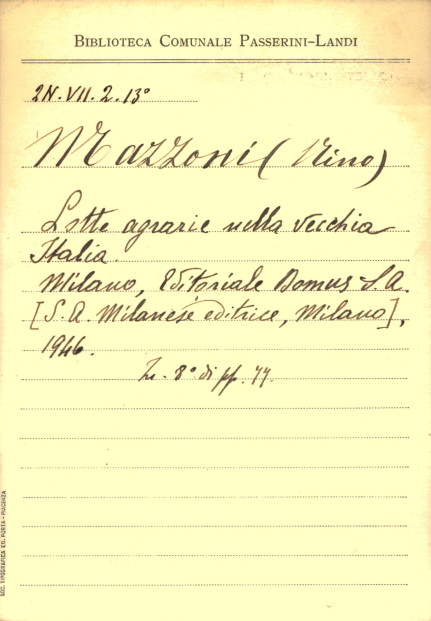 BIBLIOTECA COMUNALE PASSERINI-LANDI
2N.VII.2.13°
Mazzoni (Nino)
Lotte agrarie nella vecchia
Italia.
Milano, Editoriale Domus S.A.
[S.A. Milanese editrice, Milano],
1946.
In-8° di pp. 77.
SOC. TIPOGRAFICA ED. PORTA - PIACENZA